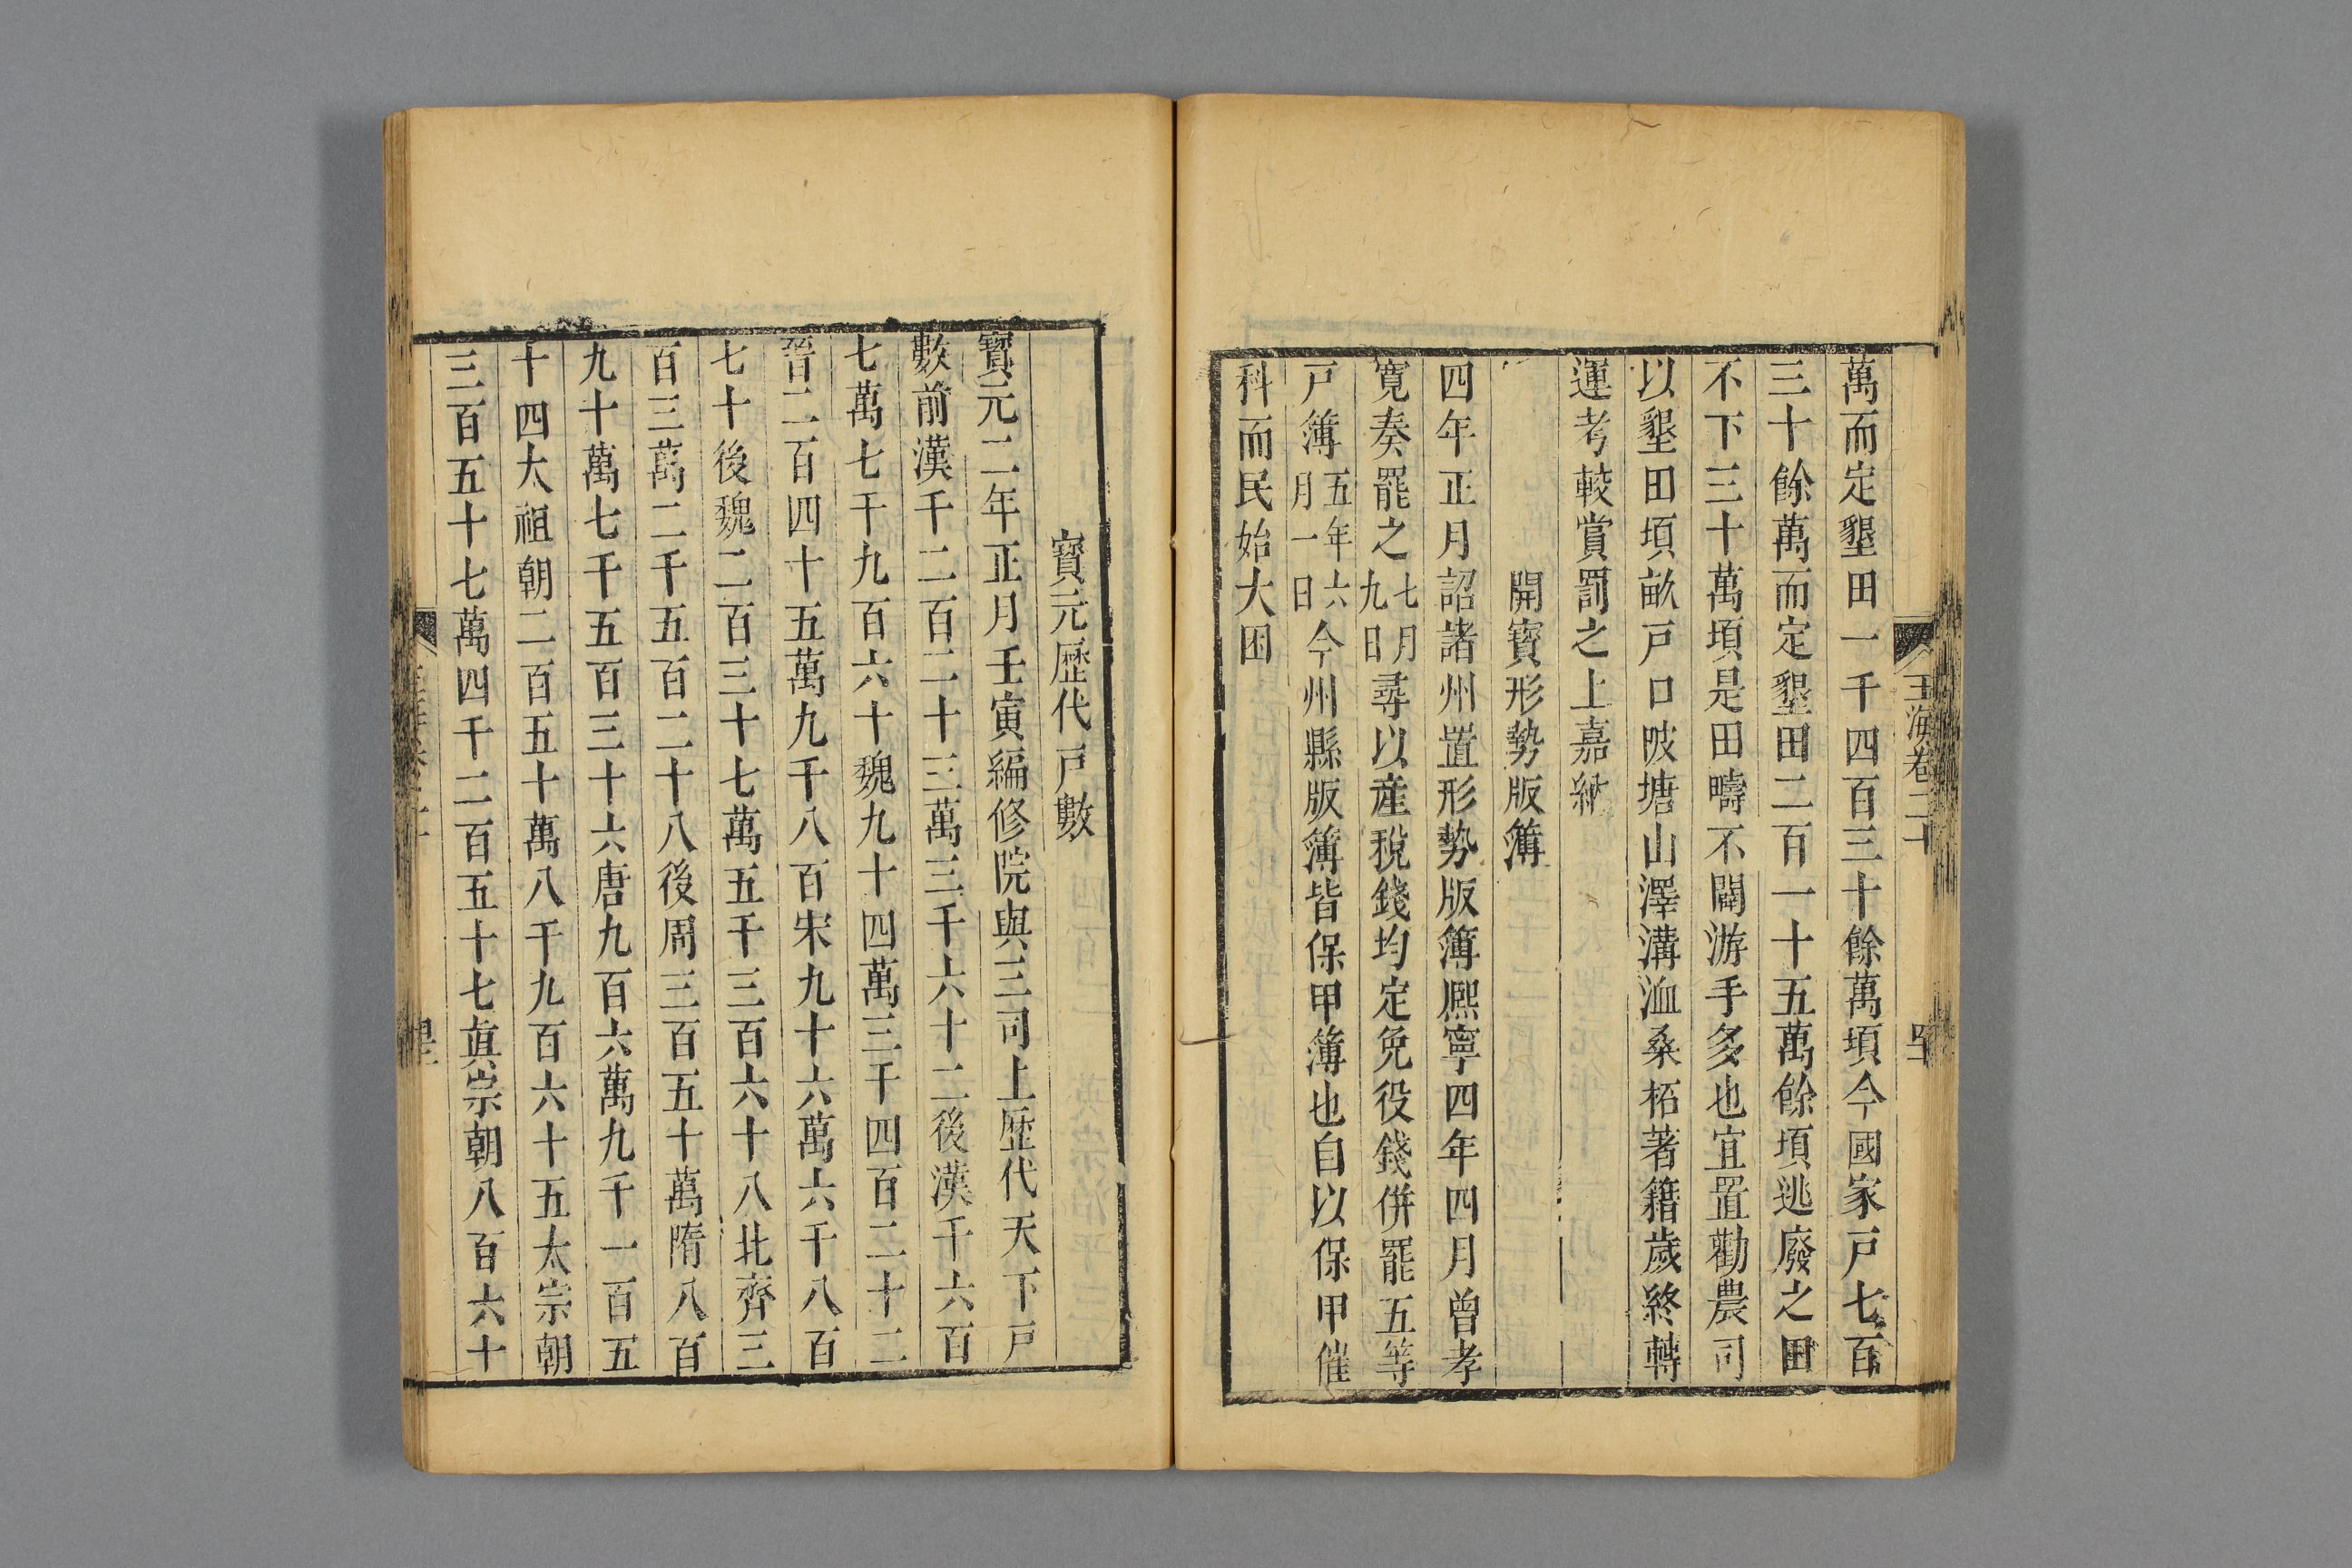 玉海卷二十
萬而定墾田一千四百三十餘萬頃今國家戸七百
三十餘萬而定墾田二百一十五萬餘頃逃廢之田
不下三十萬頃是田疇不闢游手多也宜置勸農司
以墾田頃畝戸口陂塘山澤溝洫桑柘著籍歲終轉
運考較賞罰之上嘉納
開寶形勢版簿
四年正月詔諸州置形勢版簿熈寧四年四月曾孝
寛奏罷之七月九日尋以産稅錢均定免役錢併罷五等
戸簿五年六月一日今州縣版簿皆保甲簿也自以保甲催
科而民始大困
寶元歷代戸數
寶元二年正月壬寅編修院與三司上歷代天下戸
數前漢千二百二十三萬三千六十二後漢千六百
七萬七千九百六十魏九十四萬三千四百二十二
晉二百四十五萬九千八百宋九十六萬六千八百
七十後魏二百三十七萬五千三百六十八北齊三
百三萬二千五百二十八後周三百五十萬隋八百
九十萬七千五百三十六唐九百六萬九千一百五
十四太祖朝二百五十萬八千九百六十五太宗朝
三百五十七萬四千二百五十七眞宗朝八百六十